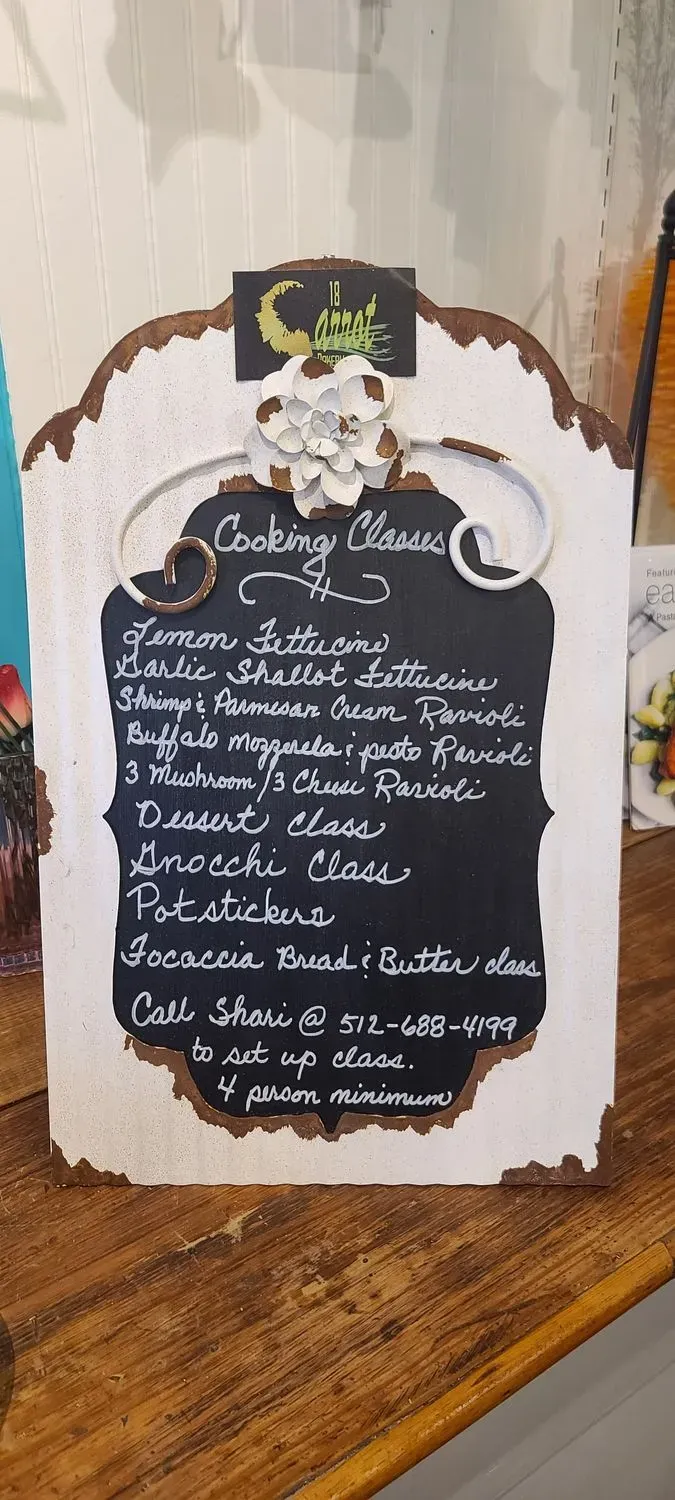 18
Carrot
BAKERY
Cooking Classes
Lemon Fettucine
Garlic Shallot Fettucine
Shrimp & Parmesan Cream Ravioli
Buffalo mozzerela & pesto Ravioli
3 Mushroom/3 Cheese Ravioli
Dessert Class
Gnocchi Class
Potstickers
Focaccia Bread & Butter class
Call Shari @ 512-688-4199
to set up class.
4 person minimum
Featur
ea
Pasta